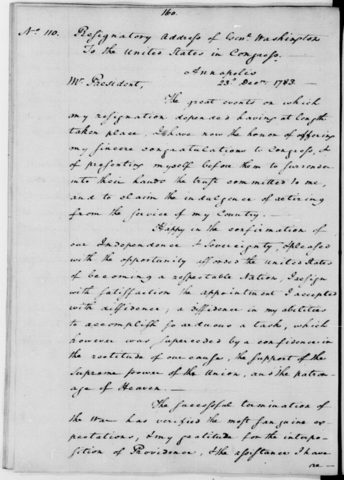 160.
No. 110. Resignatory Address of Genl. Washington
To the United States in Congress.
Annapolis
Mr. President, 23d. Decr. 1783.
The great events on which
my resignation depended having at length
taken place, I have now the honor of offering
my sincere congratulations to Congress, & of
presenting myself before them to surrender
into their hands the trust committed to me,
and to claim the indulgence of retiring
from the service of my Country.
Happy in the confirmation of
our Independence & Sovereignty, & pleased
with the opportunity afforded the United States
of becoming a respectable Nation, I resign
with satisfaction the appointment I accepted
with diffidence, a diffidence in my abilities
to accomplish so arduous a task, which
however was superceded by a confidence in
the rectitude of our cause, the support of the
Supreme power of the Union, and the patron-
age of Heaven.
The successful termination of
the War has verified the most sanguine ex-
pectations, & my gratitude for the interpo-
sition of Providence, & the assistance I have
re-